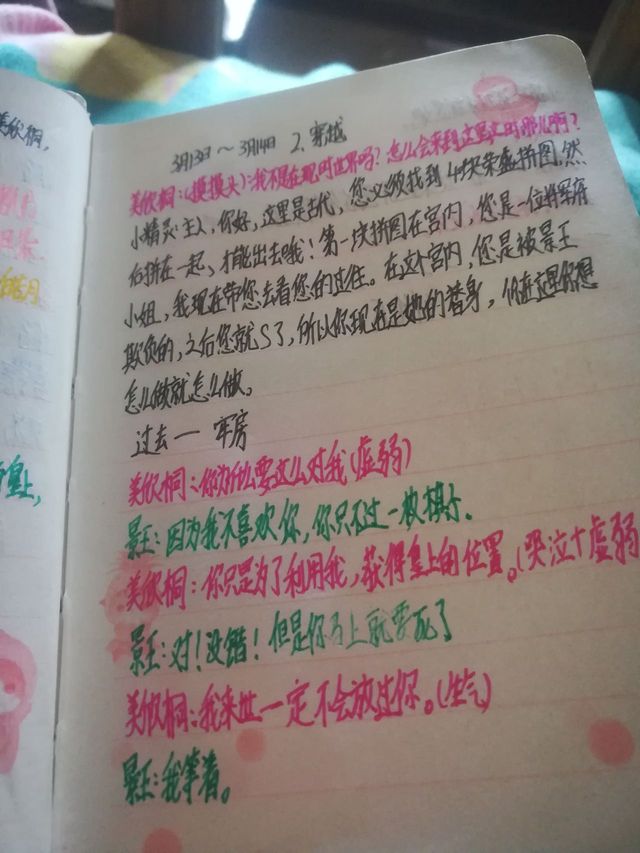 美欣桐,
皇上,
3月13日～3月14日 2.穿越
美欣桐:(摸摸头):我不是在现时世界吗?怎么会来到这里
小精灵:主人,你好,这里是古代,您必须找到4块荣盛拼图,然
后拼在一起,才能出去哦!第一块拼图在宫内,您是一位将军府
小姐,我现在带您去看您的过往。在这个宫内,您是被景王
欺负的,之后您就S了,所以你现在是她的替身,你在这里你想
怎么做就怎么做。
过去一 牢房
美欣桐:你为什么要这么对我(虚弱)
景王:因为我不喜欢你,你只不过一枚棋子。
美欣桐:你只是为了利用我,获得皇上的位置。(哭泣+虚弱
景王:对!没错!但是你马上就要死了
美欣桐:我来世一定不会放过你。(生气)
景王:我等着。